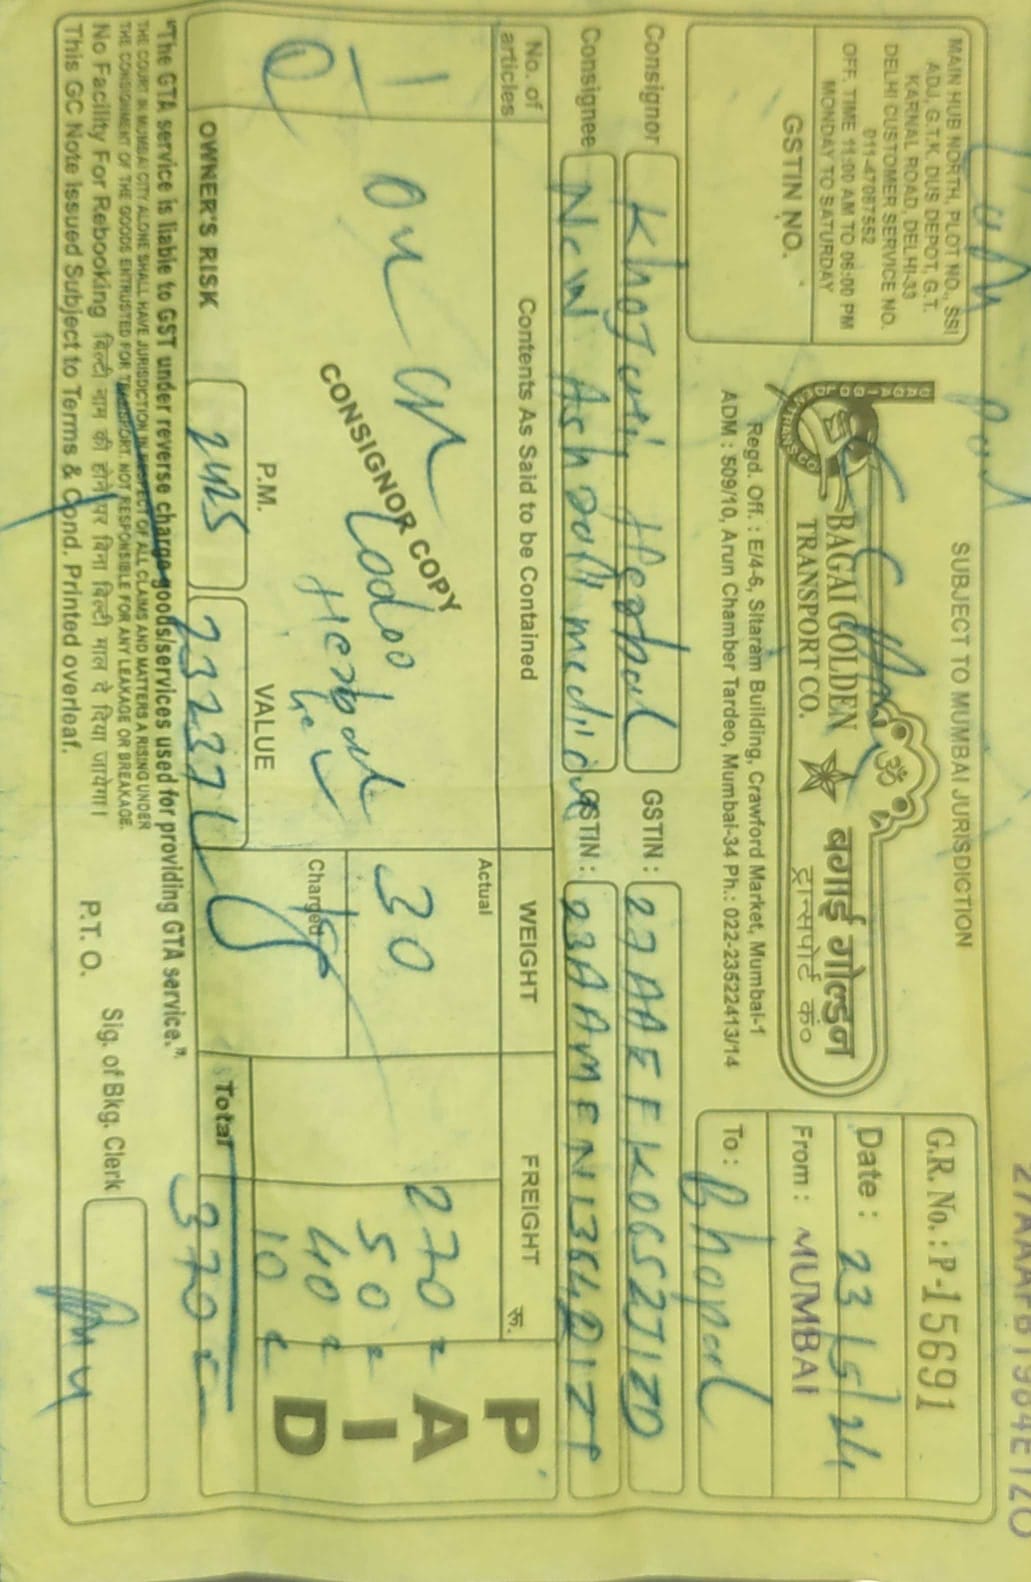 27AAAFB1984E1ZO
MAIN HUB NORTH, PLOT NO., SSI
ADJ, G.T.K. DUS DEPOT, G.T.
KARNAL ROAD, DELHI-33
DELHI CUSTOMER SERVICE NO.
011-47087552
OFF. TIME 11:00 AM TO 06:00 PM
MONDAY TO SATURDAY
GSTIN NO.
SUBJECT TO MUMBAI JURISDICTION
BAGAI GOLDEN
TRANSPORT CO.
बगाई गोल्डन
ट्रान्सपोर्ट कं०
Regd. Off. : E/4-6, Sitaram Building, Crawford Market, Mumbai-1
ADM : 509/10, Arun Chamber Tardeo, Mumbai-34 Ph.: 022-23522413/14
G.R. No. : P-15691
Date : 23/5/24
From : MUMBAI
To : Bhopal
Consignor Khajuri Herbal GSTIN : 27AAEFK0652J1ZD
Consignee New Ashdall medici GSTIN :
No. of articles
Contents As Said to be Contained
WEIGHT
FREIGHT रू.
1
Actual
30
Charged
CONSIGNOR COPY
Herbal
270
50
40
10
PAID
P.M.
VALUE
OWNER'S RISK
2425
Total 370
"The GTA service is liable to GST under reverse charge goods/services used for providing GTA service."
THE COURT IN MUMBAI CITY ALONE SHALL HAVE JURISDICTION IN RESPECT OF ALL CLAIMS AND MATTERS A RISING UNDER
THE CONSIGNMENT OF THE GOODS ENTRUSTED FOR TRANSPORT. NOT RESPONSIBLE FOR ANY LEAKAGE OR BREAKAGE.
No Facility For Rebooking बिल्टी नाम की होने पर बिना बिल्टी माल दे दिया जायेगा।
This GC Note Issued Subject to Terms & Cond. Printed overleaf.
P.T.O.
Sig. of Bkg. Clerk